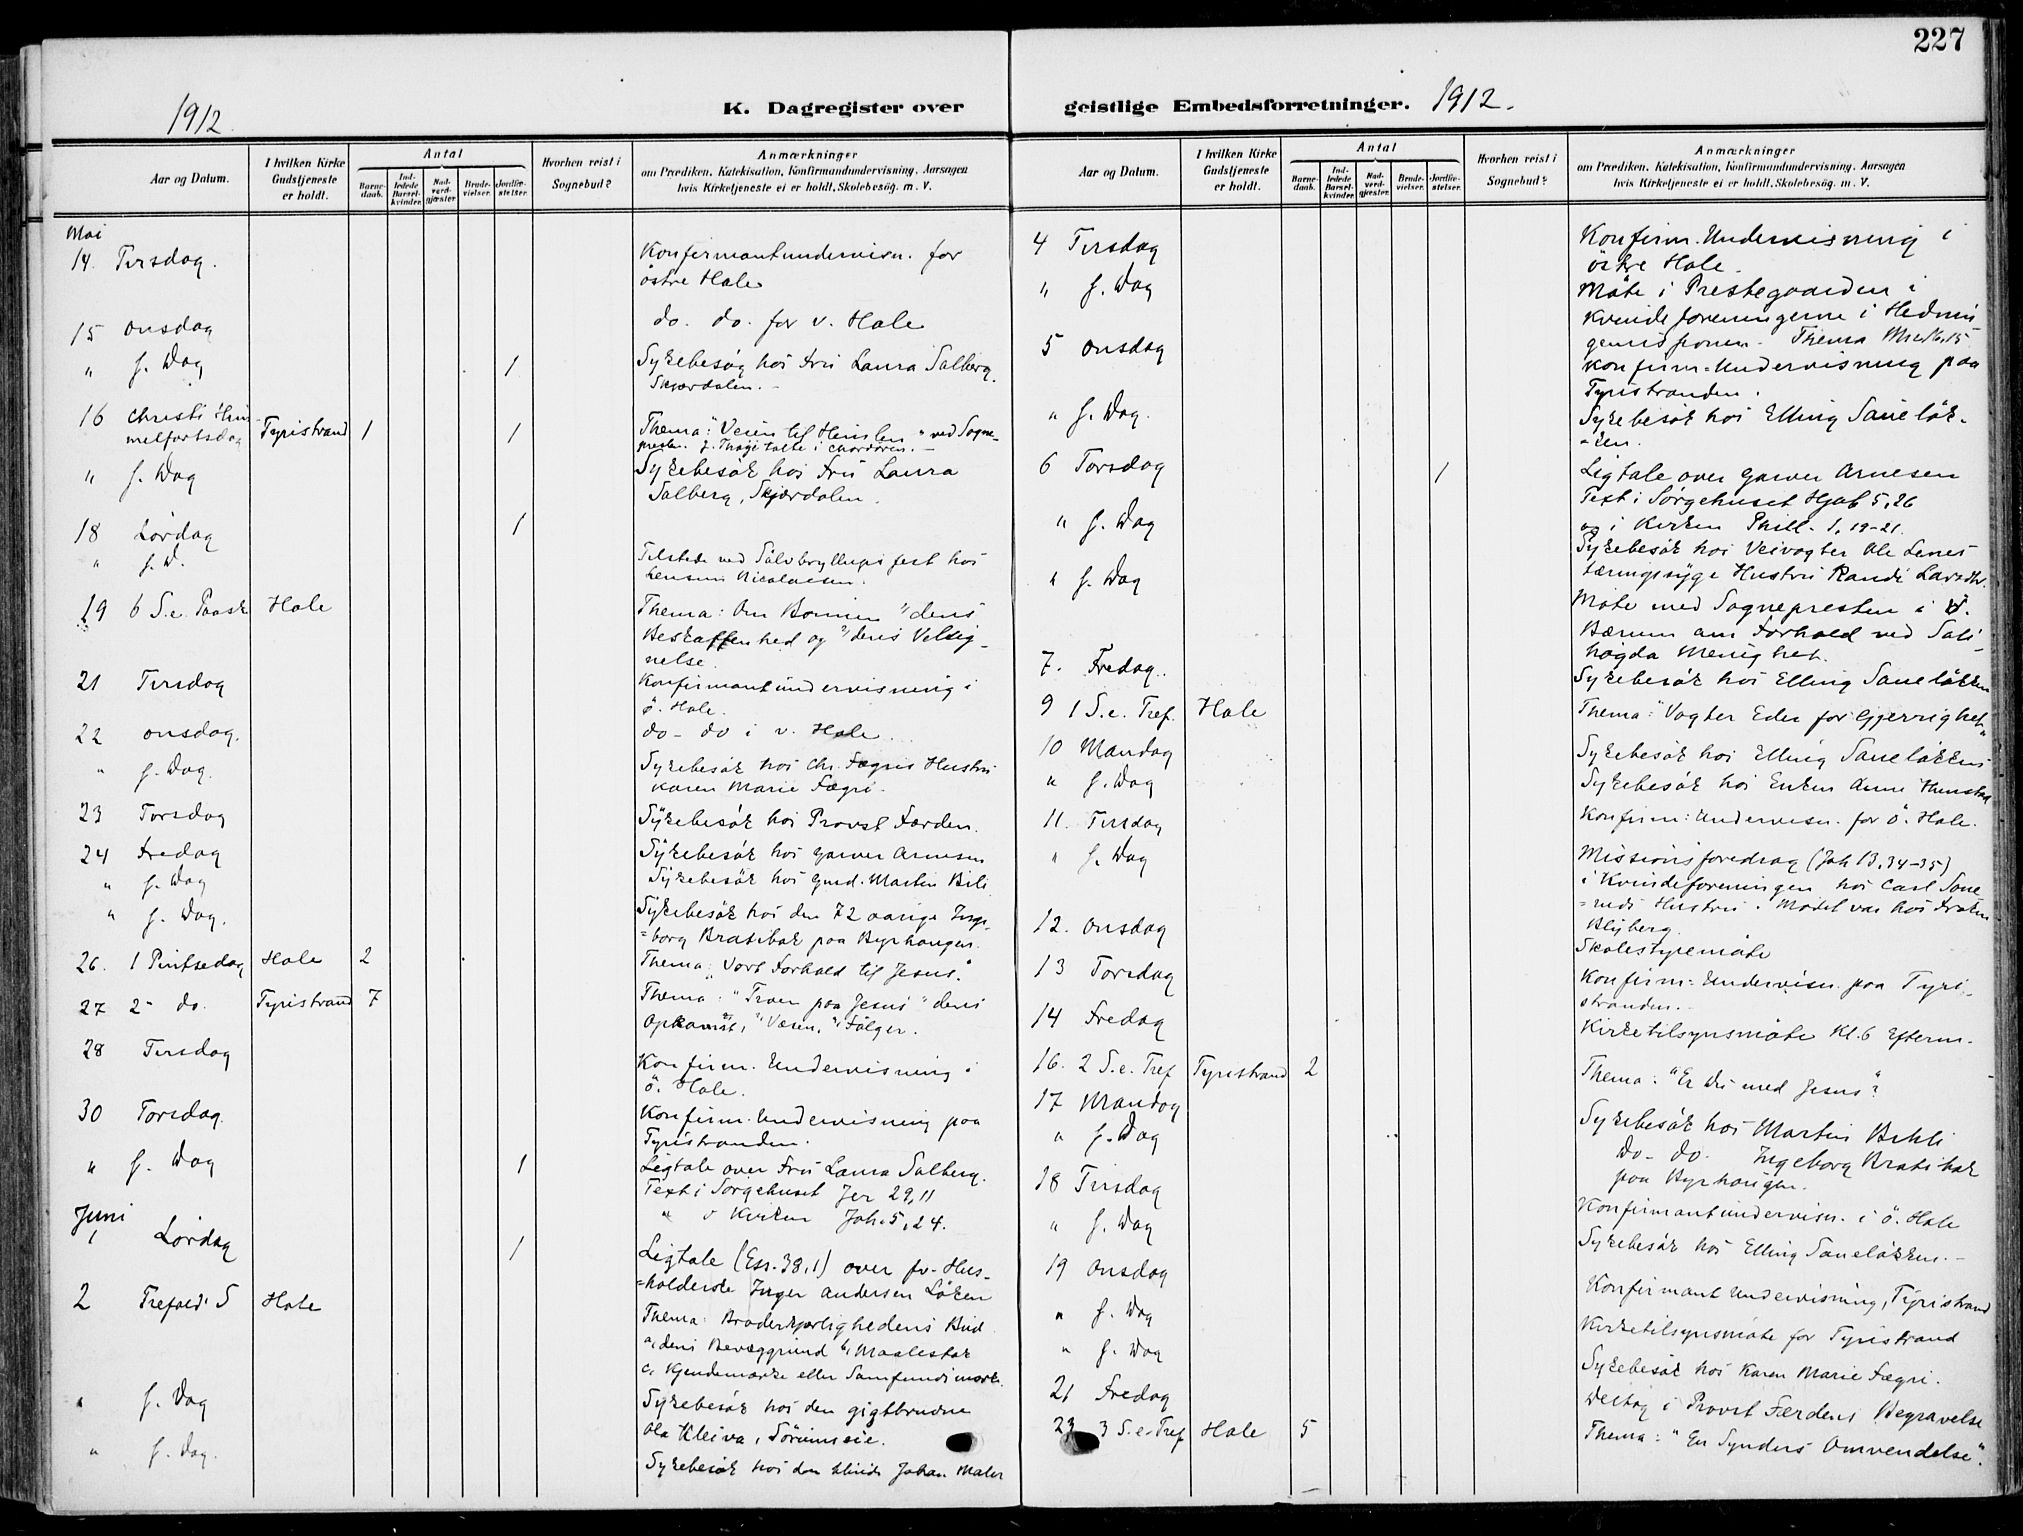 227
1912.
K. Dagregister over
Aar og Datum.
I hvilken Kirke Gudstjeneste er holdt.
Antal
Barnedaab.
Indledede Barselkvinder.
Nadverdgjæster.
Brudevielser.
Jordfæstelser.
Hvorhen reist i Sognebud?
Anmærkninger
om Prædiken, Katekisation, Konfirmandundervisning, Aarsagen
hvis Kirketjeneste ei er holdt, Skolebesøg. m. V.
Mai
14. Tirsdag. Konfirmantundervisn. for
östre Hole
15 Onsdag do. do. for v. Hole
" s. Dag 1 Sykebesøg hos Fru Laura Salberg.
Skjærdalen. -
16 Christi Him-
melfartsdag Tyristrand 1 1 Thema: "Veien til Himlen" ved Sogne-
presten.
" s. Dag Sykebesök hos Fru Laura
Salberg, Skjærdalen.
18 Lørdag 1
" s. D. Tilstede ved Sølvbryllupsfest hos
Nicolaisen.
19 6 S. e. Paask Hole Thema: Om Bønnen 1) dens
Beskaffenhed og 2) dens Velsig-
nelse.
21 Tirsdag Konfirmantundervisning i
ö. Hole.
22 onsdag. do - do i v. Hole
" s. Dag. Sykebesök hos Chr. Fægris Hustru
Karen Marie Fægri.
23 Torsdag Sykebesök hos Provst Færden.
24 Fredag Sykebesök hos garver Arnesen
" s. Dag Sykebesök hos Gmd. Martin Bili
" s. Dag. Sykebesök hos den 72 aarige Inge-
=borg Bratibak paa Byrhaugen.
26. 1 Pintsedag Hole 2 Thema: "Vort Forhold til Jesus."
27 2 - do. Tyristrand 7 Thema: "Troen paa Jesus" dens
Opkomst, 2) Væsen, 3) Følger.
28 Tirsdag Konfirm. Undervisning i
ö. Hole.
30 Torsdag. Konfirm. Undervisning paa
Tyristranden.
" s. Dag 1 Ligtale over Fru Laura Salberg.
Text i Sørgehuset Jer 29,11
" i Kirken Joh. 5,24.
Juni
1 Lørdag 1 Ligtale (Esr. 38,1) over fv. Hus-
=holderske Inger Andersen Löken
2 Trefold. S Hole Thema: Broderkjærlighedens Bud
a, dens Bevæggrund b, Maalestok
c, Kjendemærke eller Samfundsmærke.
" s. Dag Sykebesök hos den gigtbrudne
Ola Kleiva, Sørumseie.
" s. Dag. Sykebesök hos den blinde Johan Maler
geistlige Embedsforretninger. 1912.
Aar og Datum.
I hvilken Kirke Gudstjeneste er holdt.
Antal
Barnedaab.
Indledede Barselkvinder.
Nadverdgjæster.
Brudevielser.
Jordfæstelser.
Hvorhen reist i Sognebud?
Anmærkninger
om Prædiken, Katekisation, Konfirmandundervisning, Aarsagen
hvis Kirketjeneste ei er holdt, Skolebesög. m. V.
4 Tirsdag Konfirm. Undervisning i
östre Hole.
" s. Dag Möte i Prestegaarden i
Kvindeforeningerne i Hedning
Thema
5 Onsdag Konfirm.Undervisning paa
Tyristranden.
" s. Dag. Sykebesök hos Elling Sanelök-
-ken.
6 Torsdag 1 Ligtale over garver Arnesen
Text i Sørgehuset Hjob 5,26
og i Kirken Phill. 1, 19-21.
" s. Dag Sykebesök hos Veivogter Ole Lenes
tæringssyge Hustru Randi Larsdtr.
" s. Dag Möte med Sognepresten i V.
Bærum om Forhold ved Soli-
høgda Menighet.
7. Fredag. Sykebesök hos Elling Sanelökken
9 1 S. e. Tref. Hole Thema: "Vogter Eder for Gjerrighet"
10 Mandag Sykebesök hos Elling Sanelökken
" s. Dag Sykebesök hos Enken Anne
11. Tirsdag Konfirm: Undervisn. for ö. Hole.
" s. Dag Missionsforedrag (Joh 13,34-35)
i Kvindeforeningen hos Carl Sone
=ruds Hustru. Mödet var hos Frøken
Blyberg.
12. Onsdag Skolestyremöte
13 Torsdag Konfirm: Undervisn. paa Tyri-
stranden.
14 Fredag Kirketilsynsmöte Kl. 6 Efterm.
16. 2 S. e. Tref Tyristrand 2 Thema: "Er du med Jesus"?
17 Mandag Sykebesök hos Martin Bihli
" s. Dag Do - Do. Ingeborg Bratibak
paa Byrhaugen.
18 Tirsdag Konfirmantundervisn. i ö. Hole
" s. Dag Sykebesök hos Elling Sanelökken. -
19 Onsdag Konfirmant Undervisning, Tyristrand
" s. Dag Kirketilsynsmöte for Tyristrand
" s. Dag Sykebesök hos Karen Marie Fægri.
21 Fredag Deltog i Provst Færdens Begravelse
23 3 S. e. Tref Hole 5 Thema: "En Synders Omvendelse".